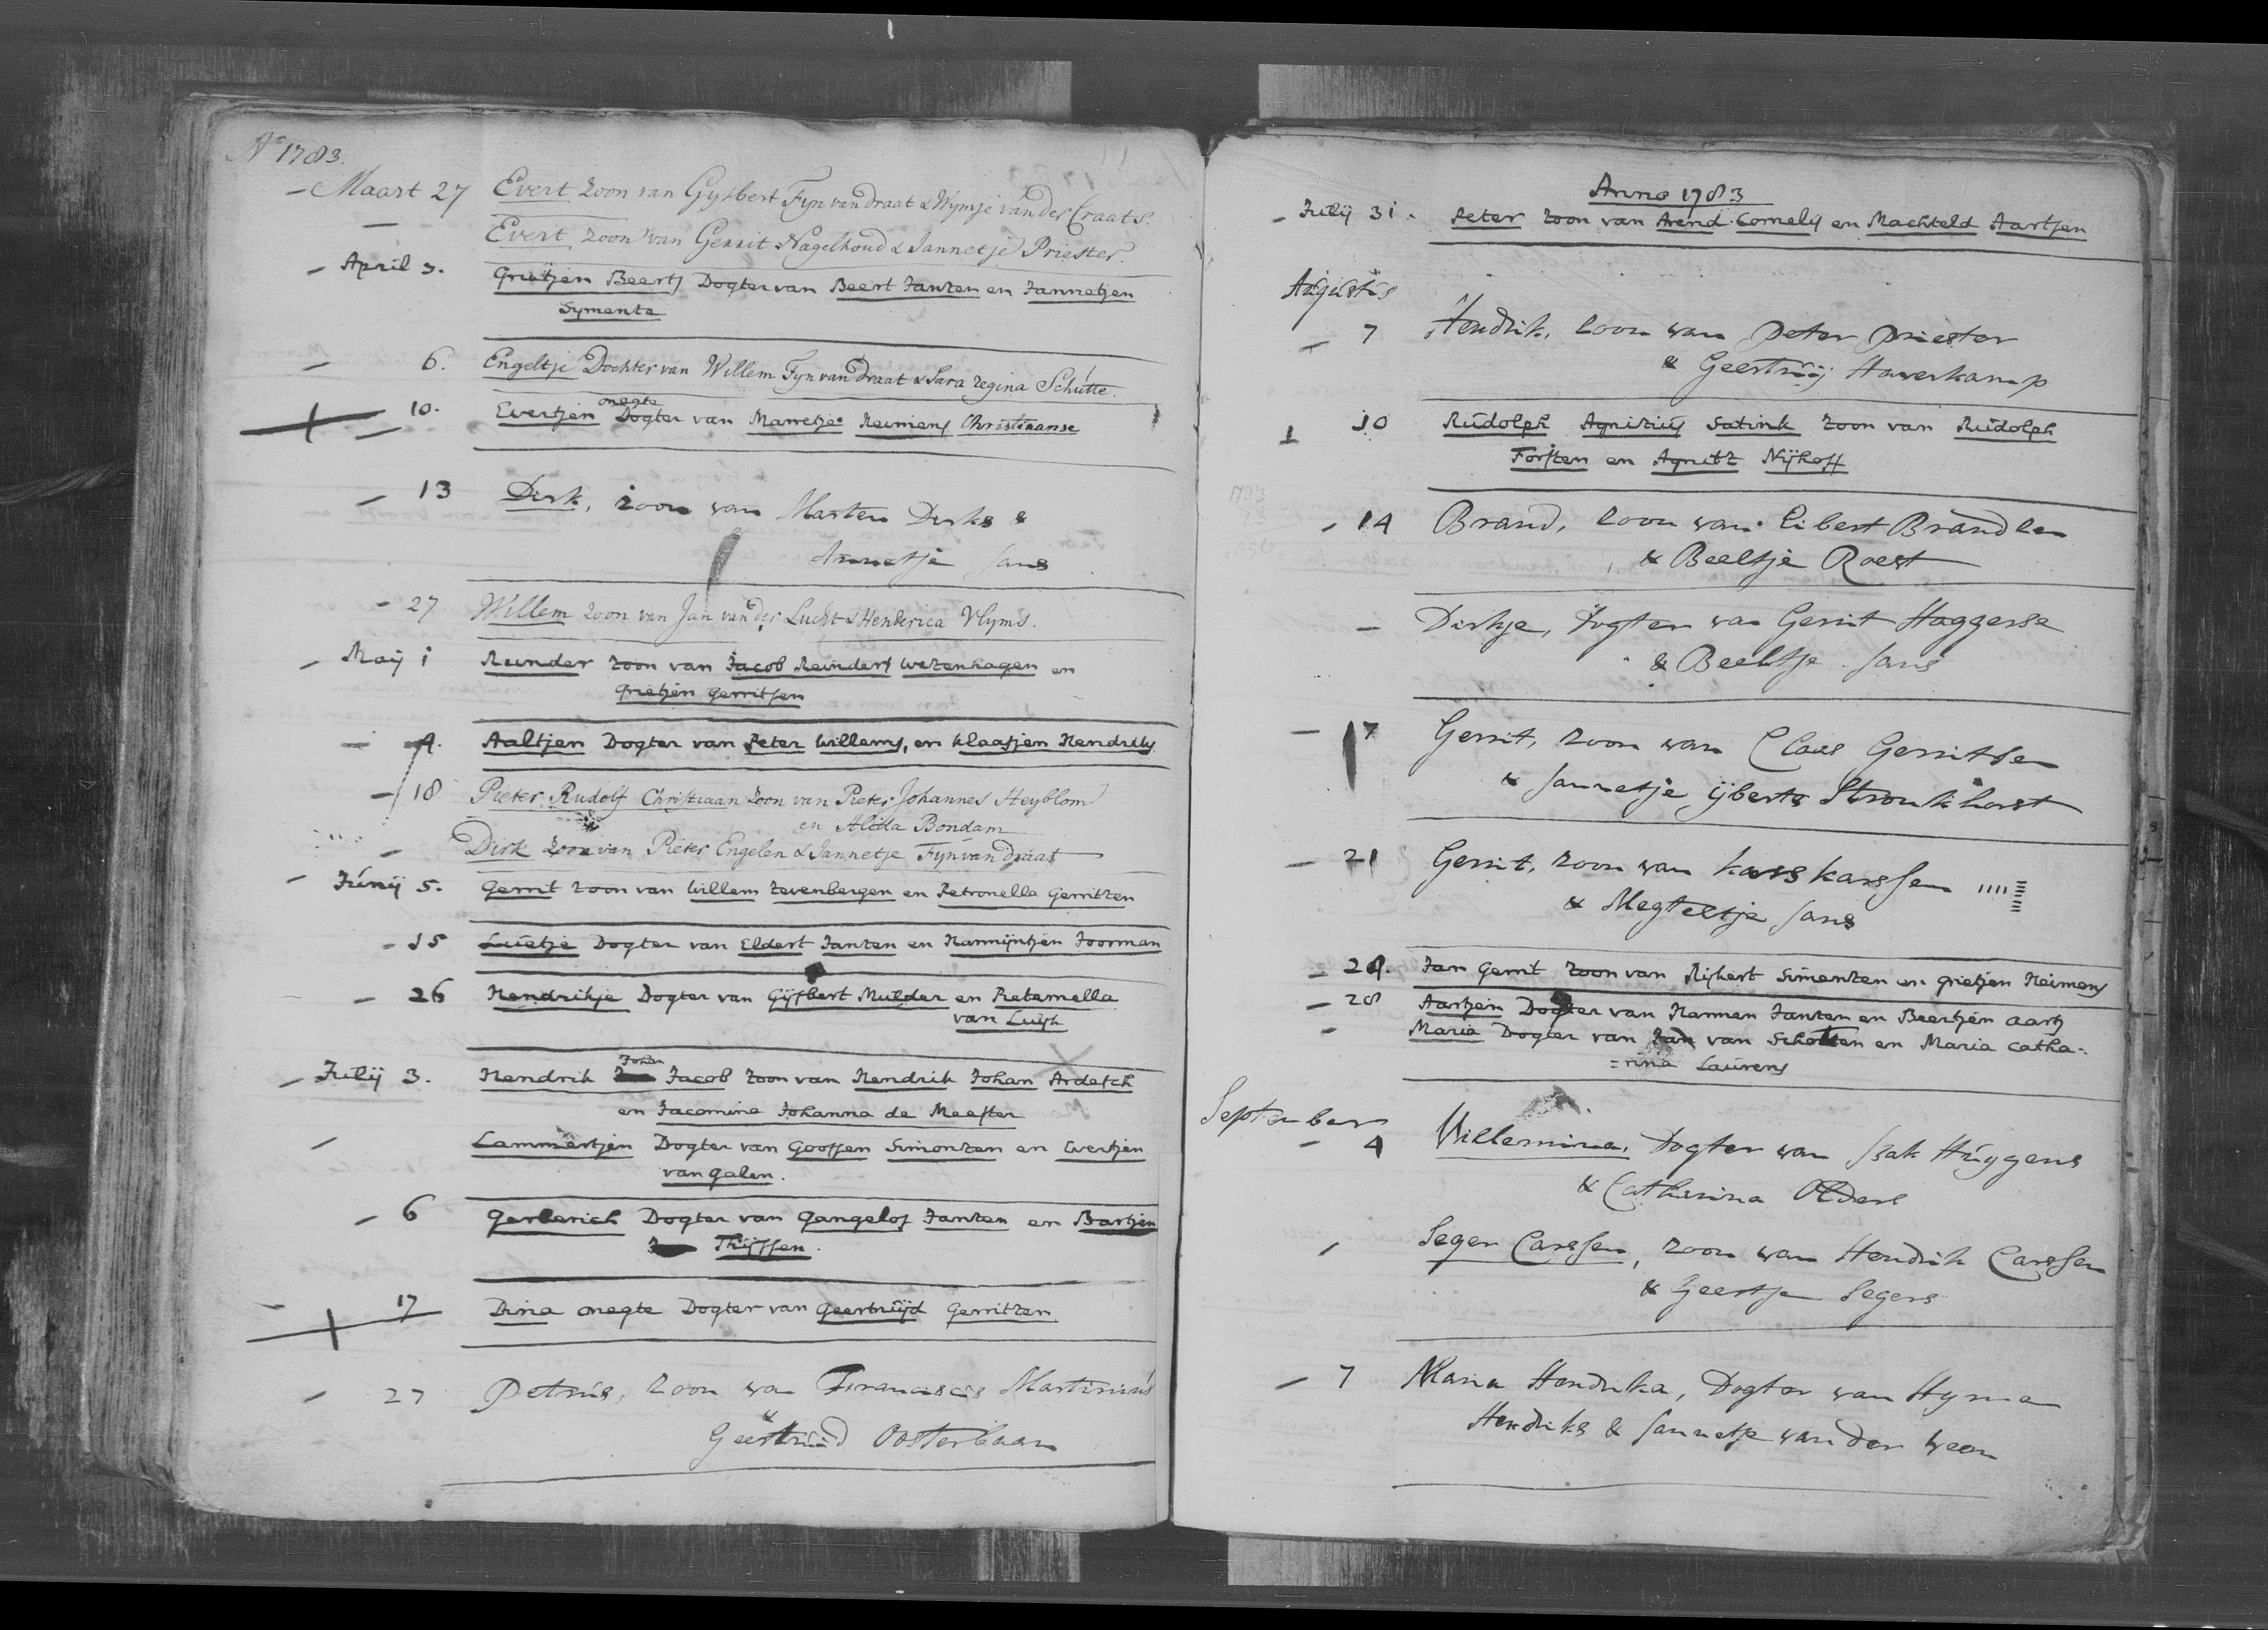 Ao 1783.
Maart 27 Evert zoon van Gysbert Fyn van draat & Wymje van der Craats.
Evert zoon van Gerrit Nagelhoud & Jannetje Priester.
April 3. Grietjen Beerts Dogter van Beert Janzen en Jannetjen
Symente
6. Engeltje Dochter van Willem Fyn van Draat & Sara regina Schutte.
onegte
10. Evertjen Dogter van Marretje Reimens Christiaanse
13 Dirk, zoon van Marten Dirks &
Annetje Jans
27 Willem zoon van Jan van der Lucht & Henderica Vlyms.
Maij 1 Reinder zoon van Jacob Reinders Wezenhagen en
Grietjen Gerritsen
4. Aaltjen Dogter van Peter Willems, en Klaasjen Hendriks
18 Pieter Rudolf Christiaan zoon van Pieter Johannes Heyblom
en Alida Bondam
Dirk zoon van Pieter Engelen & Jannetje Fyn van draat
Junij 5. Gerrit zoon van Willem Zevenbergen en Petronella Gerritzen
15 Luetje Dogter van Eldert Janzen en Harmijntjen Foorman
26 Hendrikje Dogter van Gijsbert Mulder en Peternella
van Luijk
Johan
Julij 3. Hendrik Jacob zoon van Hendrik Johan Ardesch
en Jacomina Johanna de Meester
Lammertjen Dogter van Goossen Simonzen en Evertjen
van Galen.
6 Gerberich Dogter van Gangelof Janzen en Bartjen
Thijssen.
17 Dina onegte Dogter van Geertruijd Gerritzen
27 Petrus, zoon va Franciscus Martinus
&
Geertruid Oosterbaan
Anno 1783
Julij 31. Peter zoon van Arend Cornelis en Machteld Aartsen
Augustus
7 Hendrik, zoon van Peter Priester
& Geertruij Haverkamp
10 Rudolph Agnitius Satink zoon van Rudolph
Forsten en Agnitz Nijhoff
14 Brand, zoon van Eibert Brandsen
& Beeltje Roest
Dirkje, Dogter van Gerrit Haggesse
& Beeltje Jans
17 Gerrit, zoon van Claas Gerritsen
& Jannetje ijberts Stronkhorst
21 Gerrit, zoon van Kars Karssen
& Megteltje Jans
24. Jan Gerrit zoon van Rijkert Simenzen en Grietjen Heimens
28 Aartjen Dogter van Harmen Janzen en Beertjen Aarts
Maria Dogter van Jan van Schotten en Maria Catha-
=rina Laurens
September
4 Willemina, Dogter van Isak Huygens
& Catharina Olders
Seger Carssen, zoon van Hendrik Carssen
& Geertje Segers
7 Maria Hendrika, Dogter van Hyme
Hendriks & Jannetje van der Veen